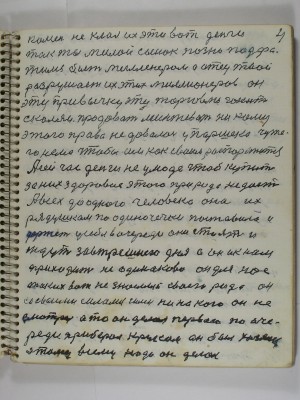 4
помен не клал их эти вот денги
так ты милой сынок позно падра
тились быть милленером а отец твой
разрушает их этих миллионеров он
эту привычку эту торговлю гонит
с каля продовать места никому
этого права не довалон у парщено чуже
го нема чтобы им как своим распорежатца
А сейчас денги не уходе чтоб купит
за них здоровие этого природа не даст
А всех до одного человека она их
рядушкам по одиночечки поставила и
у себя в очереди они стоят и
ждут завтрешнего дня а он и к нам
приходит не одинаково он для нас
таких вот не знающий своего рода он
со своими силами ни на кого он не
смотри а то он делал первого по оче
реди прибирал он был
этому всему надо он делал